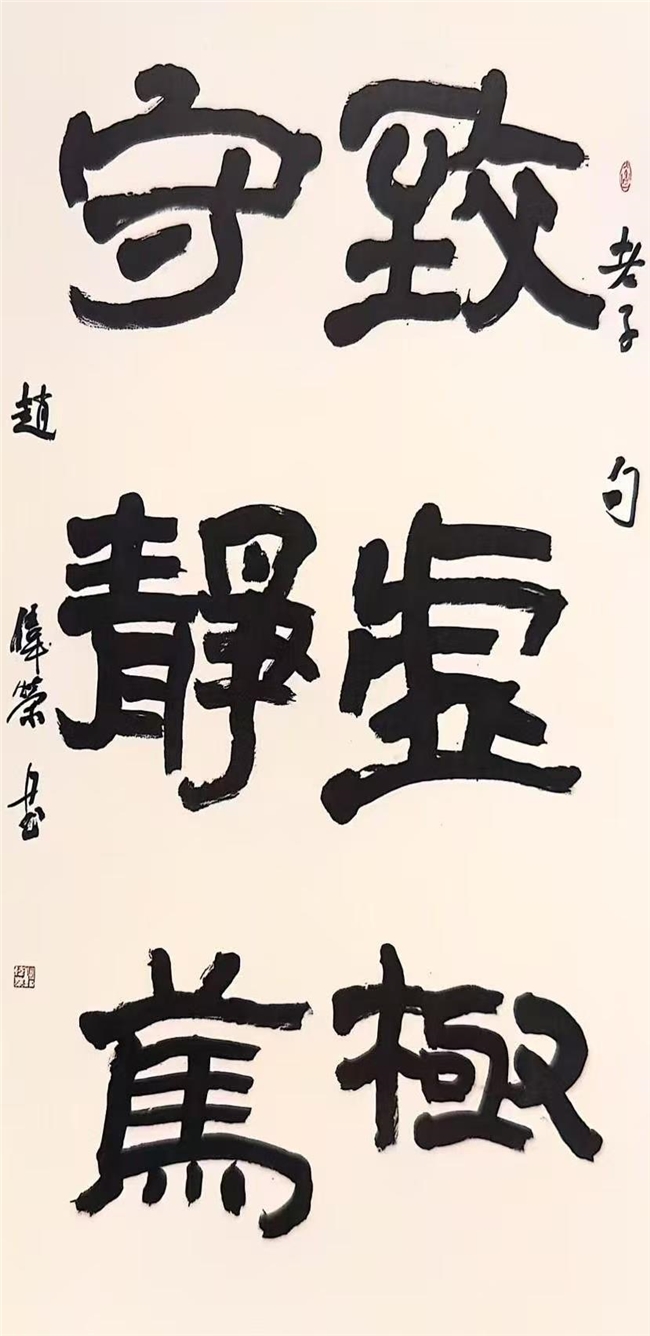 老子句
致虚極
守靜篤
趙偉榮书